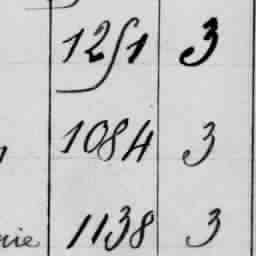 1251 3
1084 3
1138 3